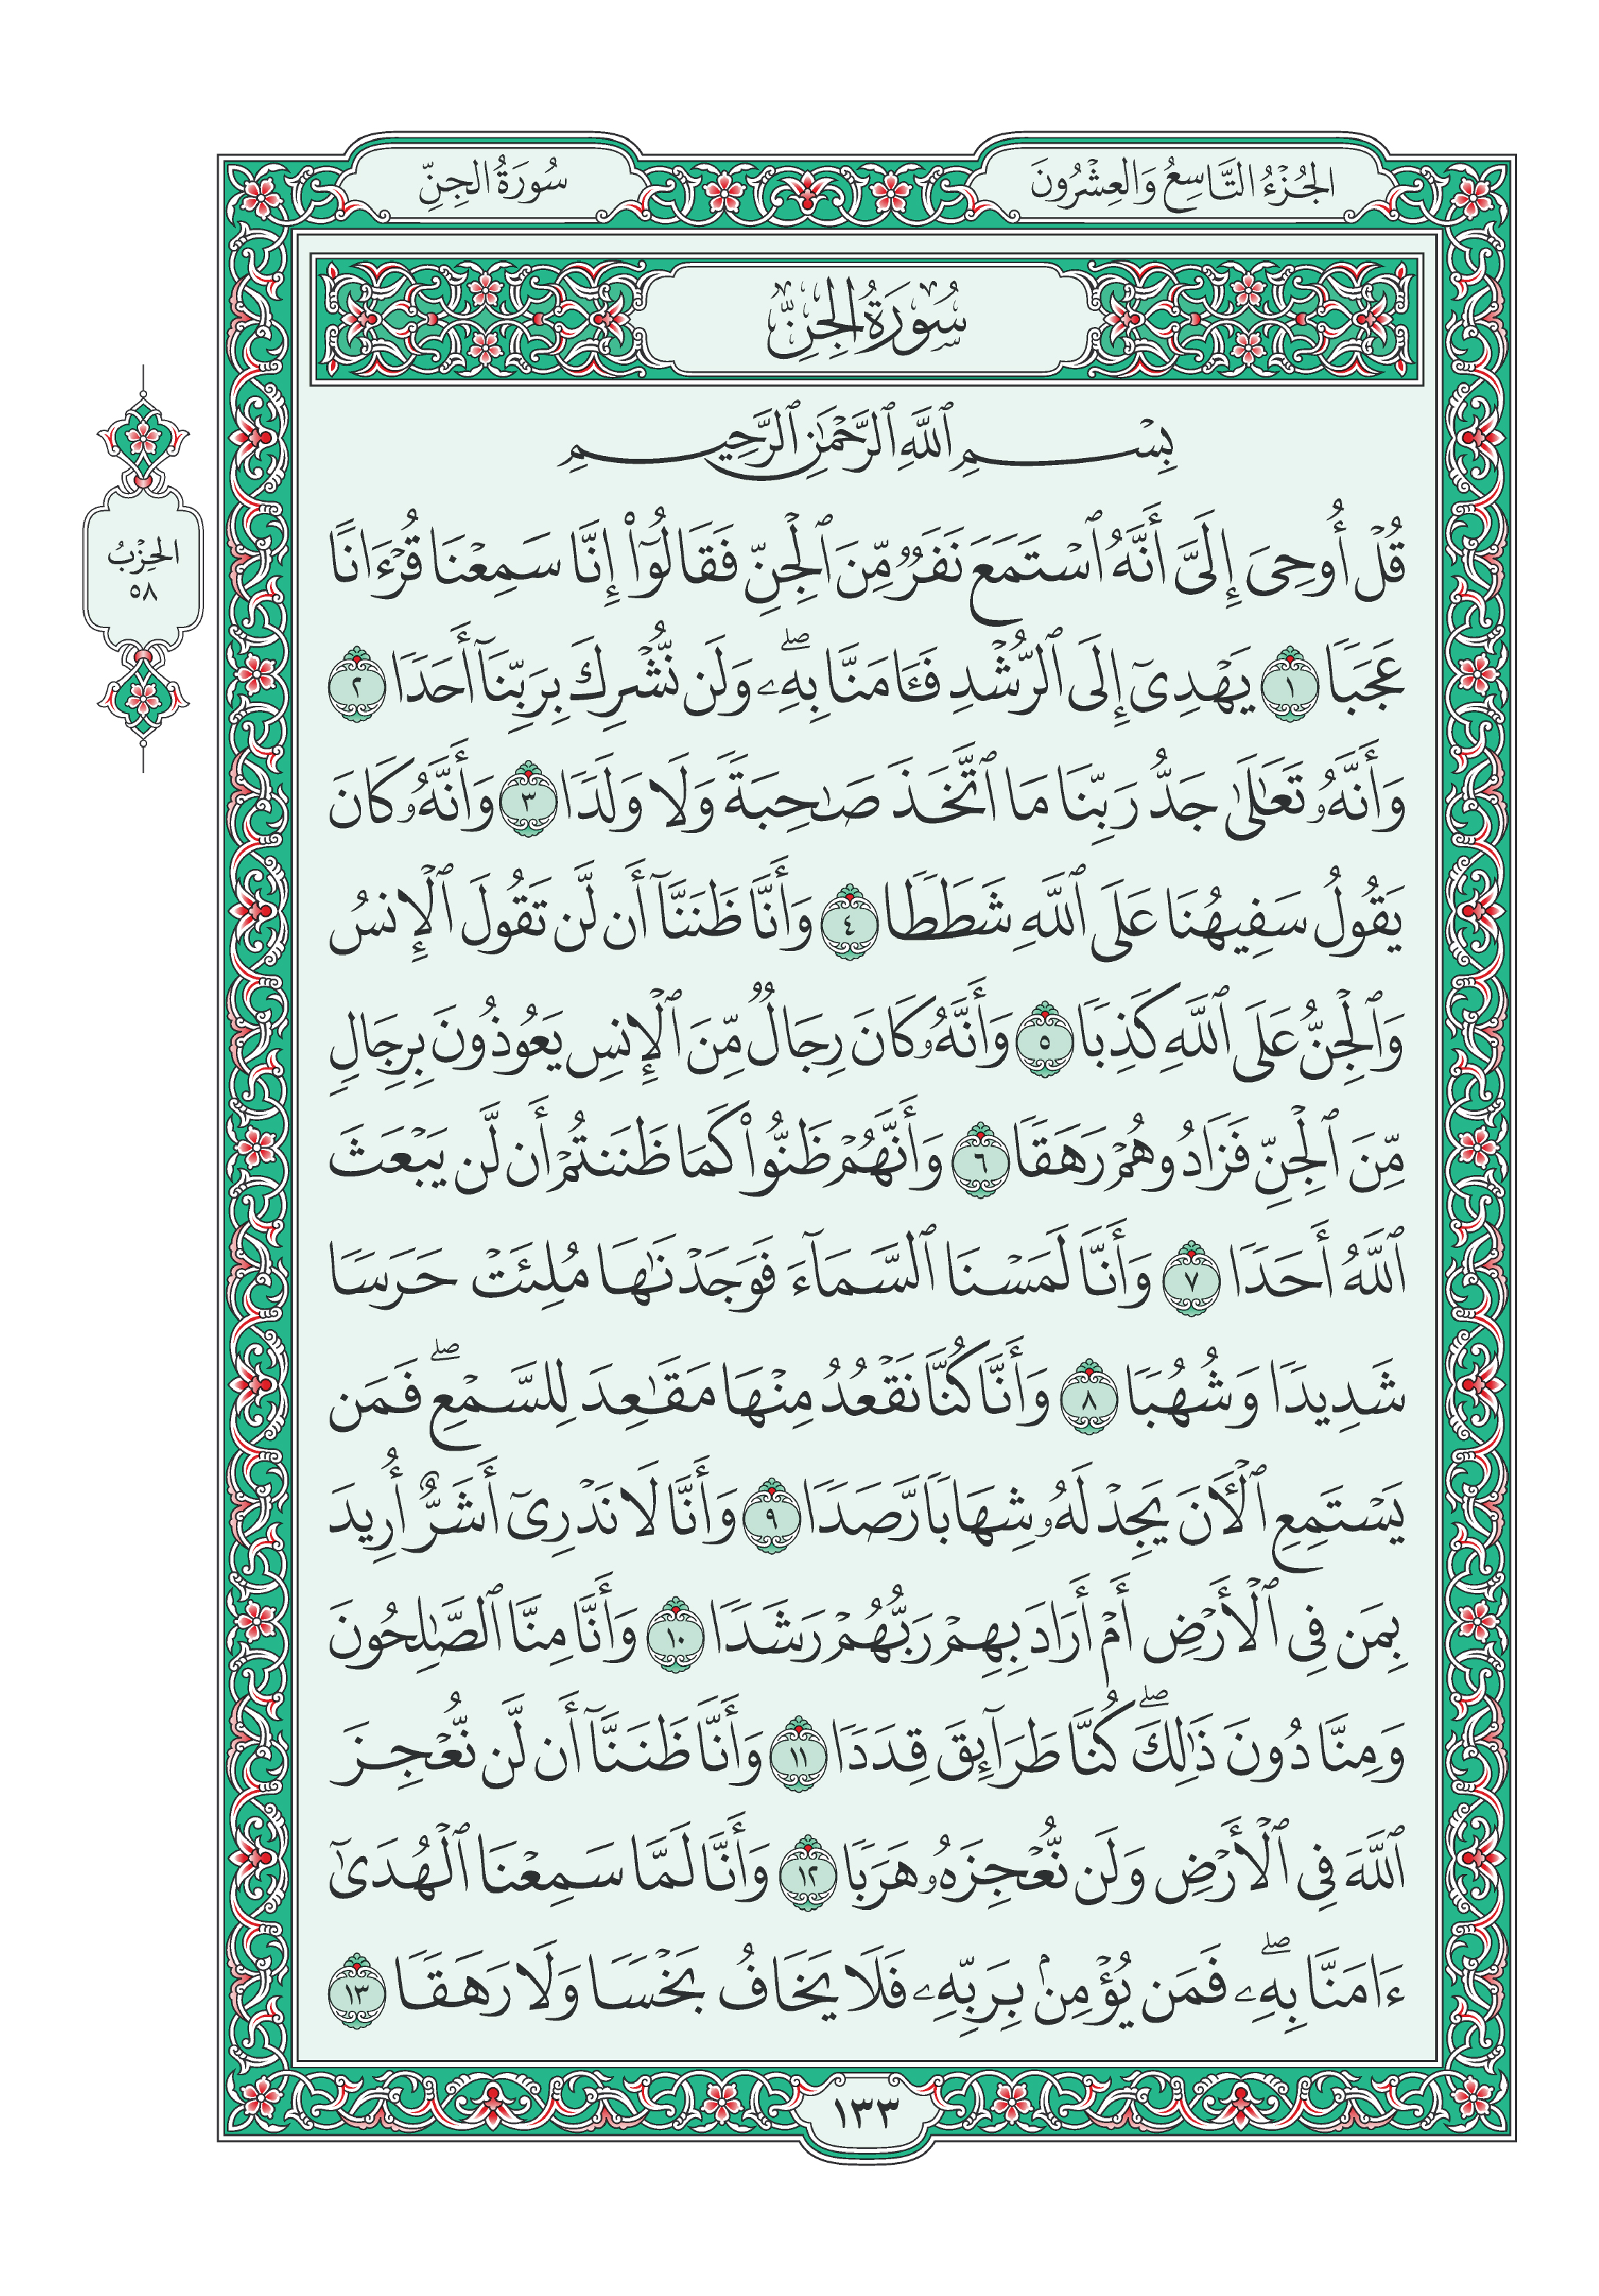 الجُزْءُ التَّاسِعُ وَالعِشْرُونَ
سُورَةُ الجِنِّ
سُورَةُ الجِنِّ
بِسْمِ ٱللَّهِ ٱلرَّحْمَٰنِ ٱلرَّحِيمِ
قُلْ أُوحِىَ إِلَىَّ أَنَّهُ ٱسْتَمَعَ نَفَرٌ مِّنَ ٱلْجِنِّ فَقَالُوٓا۟ إِنَّا سَمِعْنَا قُرْءَانًا
عَجَبًا ١ يَهْدِىٓ إِلَى ٱلرُّشْدِ فَـَٔامَنَّا بِهِۦ ۖ وَلَن نُّشْرِكَ بِرَبِّنَآ أَحَدًا ٢
وَأَنَّهُۥ تَعَٰلَىٰ جَدُّ رَبِّنَا مَا ٱتَّخَذَ صَٰحِبَةً وَلَا وَلَدًا ٣ وَأَنَّهُۥ كَانَ
يَقُولُ سَفِيهُنَا عَلَى ٱللَّهِ شَطَطًا ٤ وَأَنَّا ظَنَنَّآ أَن لَّن تَقُولَ ٱلْإِنسُ
وَٱلْجِنُّ عَلَى ٱللَّهِ كَذِبًا ٥ وَأَنَّهُۥ كَانَ رِجَالٌ مِّنَ ٱلْإِنسِ يَعُوذُونَ بِرِجَالٍ
مِّنَ ٱلْجِنِّ فَزَادُوهُمْ رَهَقًا ٦ وَأَنَّهُمْ ظَنُّوا۟ كَمَا ظَنَنتُمْ أَن لَّن يَبْعَثَ
ٱللَّهُ أَحَدًا ٧ وَأَنَّا لَمَسْنَا ٱلسَّمَآءَ فَوَجَدْنَٰهَا مُلِئَتْ حَرَسًا
شَدِيدًا وَشُهُبًا ٨ وَأَنَّا كُنَّا نَقْعُدُ مِنْهَا مَقَٰعِدَ لِلسَّمْعِ ۖ فَمَن
يَسْتَمِعِ ٱلْـَٔانَ يَجِدْ لَهُۥ شِهَابًا رَّصَدًا ٩ وَأَنَّا لَا نَدْرِىٓ أَشَرٌّ أُرِيدَ
بِمَن فِى ٱلْأَرْضِ أَمْ أَرَادَ بِهِمْ رَبُّهُمْ رَشَدًا ١٠ وَأَنَّا مِنَّا ٱلصَّٰلِحُونَ
وَمِنَّا دُونَ ذَٰلِكَ ۖ كُنَّا طَرَآئِقَ قِدَدًا ١١ وَأَنَّا ظَنَنَّآ أَن لَّن نُّعْجِزَ
ٱللَّهَ فِى ٱلْأَرْضِ وَلَن نُّعْجِزَهُۥ هَرَبًا ١٢ وَأَنَّا لَمَّا سَمِعْنَا ٱلْهُدَىٰٓ
ءَامَنَّا بِهِۦ ۖ فَمَن يُؤْمِنۢ بِرَبِّهِۦ فَلَا يَخَافُ بَخْسًا وَلَا رَهَقًا ١٣
الحِزْبُ
٥٨
١٣٣